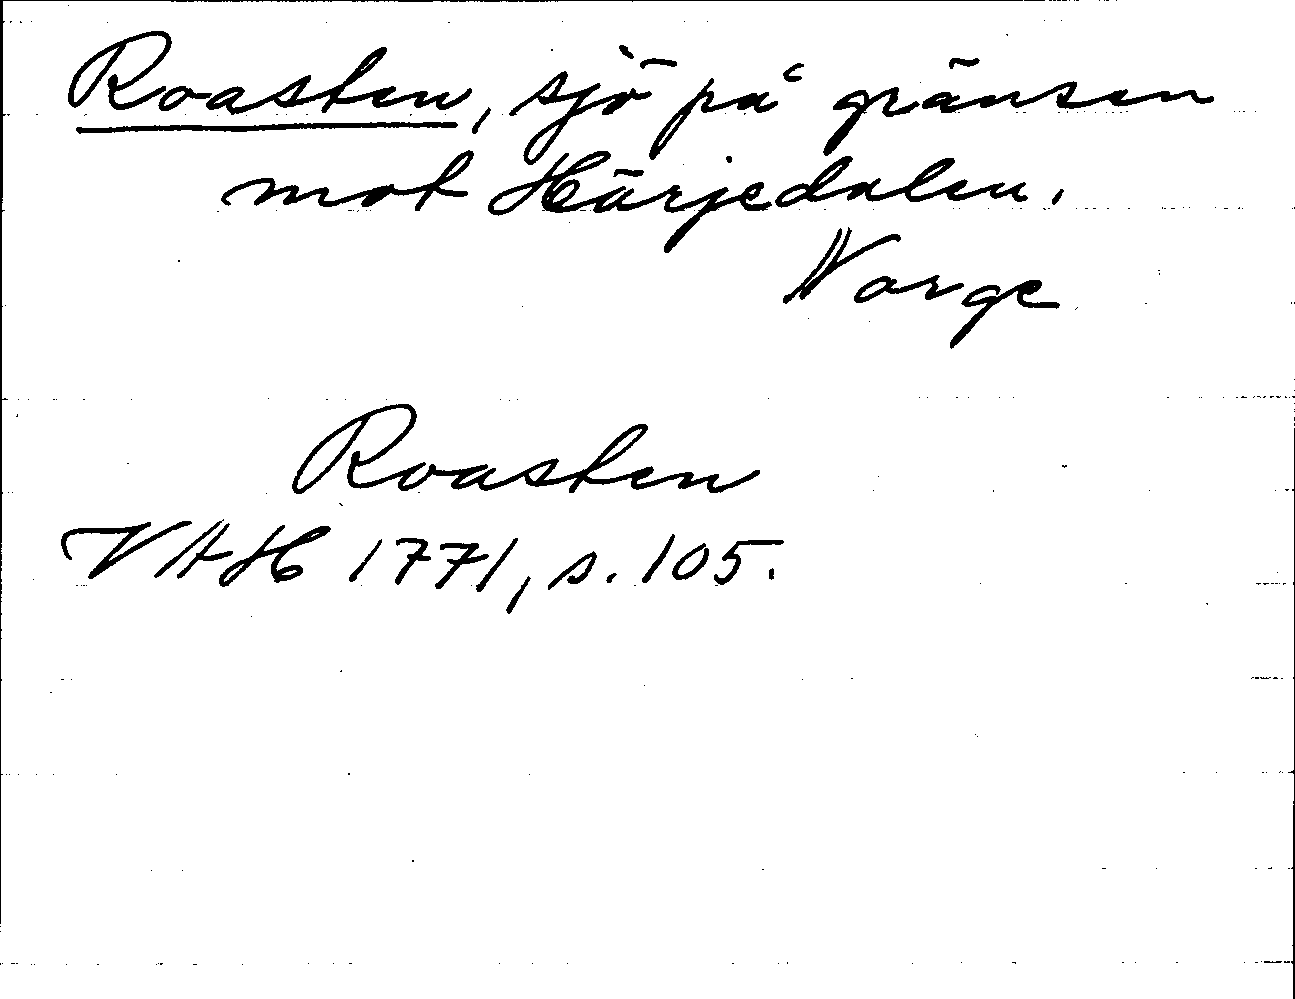 Roasten, sjö på gränsen
mot Härjedalen.
Norge
Roasten
VAH 1771, s. 105.